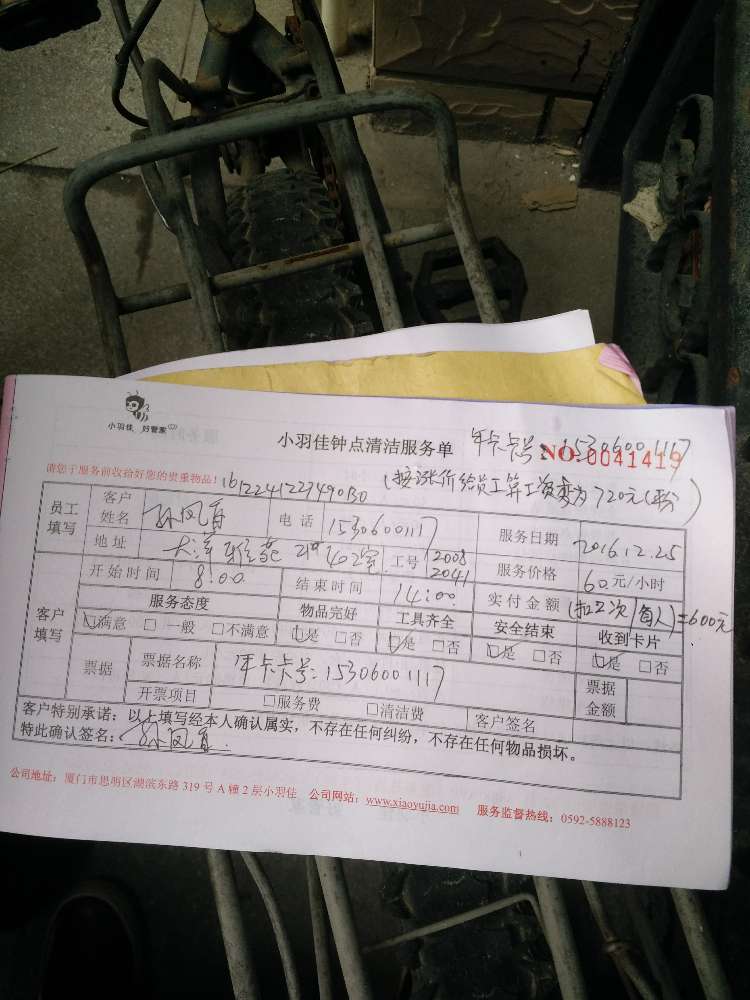 小羽佳 好管家
小羽佳钟点清洁服务单
年卡卡号:15306001117
NO.0041419
请您于服务前收拾好您的贵重物品!
(按涨价给员工算工资变为720元
员工填写
客户姓名
电话 15306001117
服务日期 2016.12.25
地址
402室
工号 2008 2041
服务价格 60元/小时
开始时间 8:00
结束时间 14:00
实付金额 (扣2次 =600元
客户填写
服务态度 物品完好 工具齐全 安全结束 收到卡片
☑满意 □一般 □不满意 ☑是 □否 ☑是 □否 ☑是 □否 ☑是 □否
票据
票据名称 年卡卡号:15306001117
票据金额
开票项目 □服务费 □清洁费 客户签名
客户特别承诺:以上填写经本人确认属实,不存在任何纠纷,不存在任何物品损坏。
特此确认签名:
公司地址:厦门市思明区湖滨东路319号A幢2层小羽佳 公司网站:www.xiaoyujia.com 服务监督热线:0592-5888123